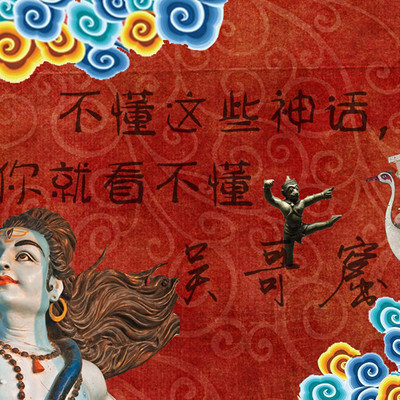 不懂这些神话，
你就看不懂
吴哥窟